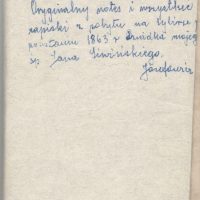 Oryginalny notes i wszystkie
zapiski z pobytu na Sybirze po
powstaniu 1863 r Dziadka mojego
śp. Jana Siwińskiego.